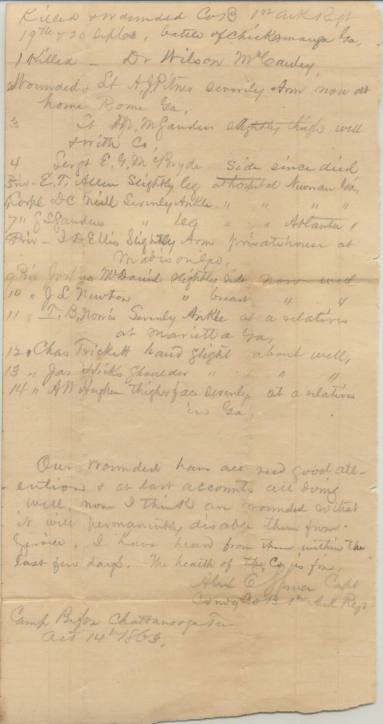 Killed & wounded Co B 1st Ark Regt
19th & 20 Sept, battle of Chickamauga Ga,
1 Killed - Dr Wilson McCauley,
Wounded, Lt severely Arm now at
home Rome Ga,
3 Lt slightly thigh well
& with Co
4 Sergt E. G. McBryde Side since died
E. T. Allen Slightly leg at hospital Newnan Ga,
Corpl DC Neill Severely Ankle " " " "
7 " Sanders " leg " " Atlanta "
J D Ellis Slightly Arm private house at
Madison Ga,
9 McDaniel slightly side now well
10 " J L Newton " breast " "
11 " T. B. Norris Severely Ankle at a relatives
at Marietta Ga,
12 " Chas Trickett hand slight about well,
13 " Jas Hicks Shoulder " " "
14 " A W Hughen thigh & face severely at a relatives
in Ga,
Our wounded have all good att-
-ention & at last accounts all doing
well, now I think are wounded so that
it will permanently disable them from
Service. I have heard from them within the
last few days. The health of the Co is fine,
Capt
Comdg Co B 1st Ark Regt
Camp Before Chattanooga Ten
Oct 14th 1863,